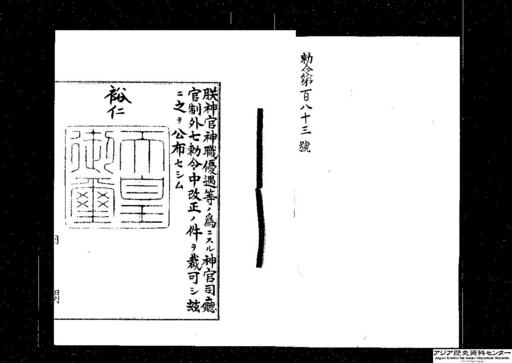 勅令第百八十三號
朕神官神職優遇等ノ爲ニスル神官司廳
官制外七勅令中改正ノ件ヲ裁可シ玆
ニ之ヲ公布セシム
裕仁
天皇
御璽
アジア歴史資料センター
Japan Center for Asian Historical Records